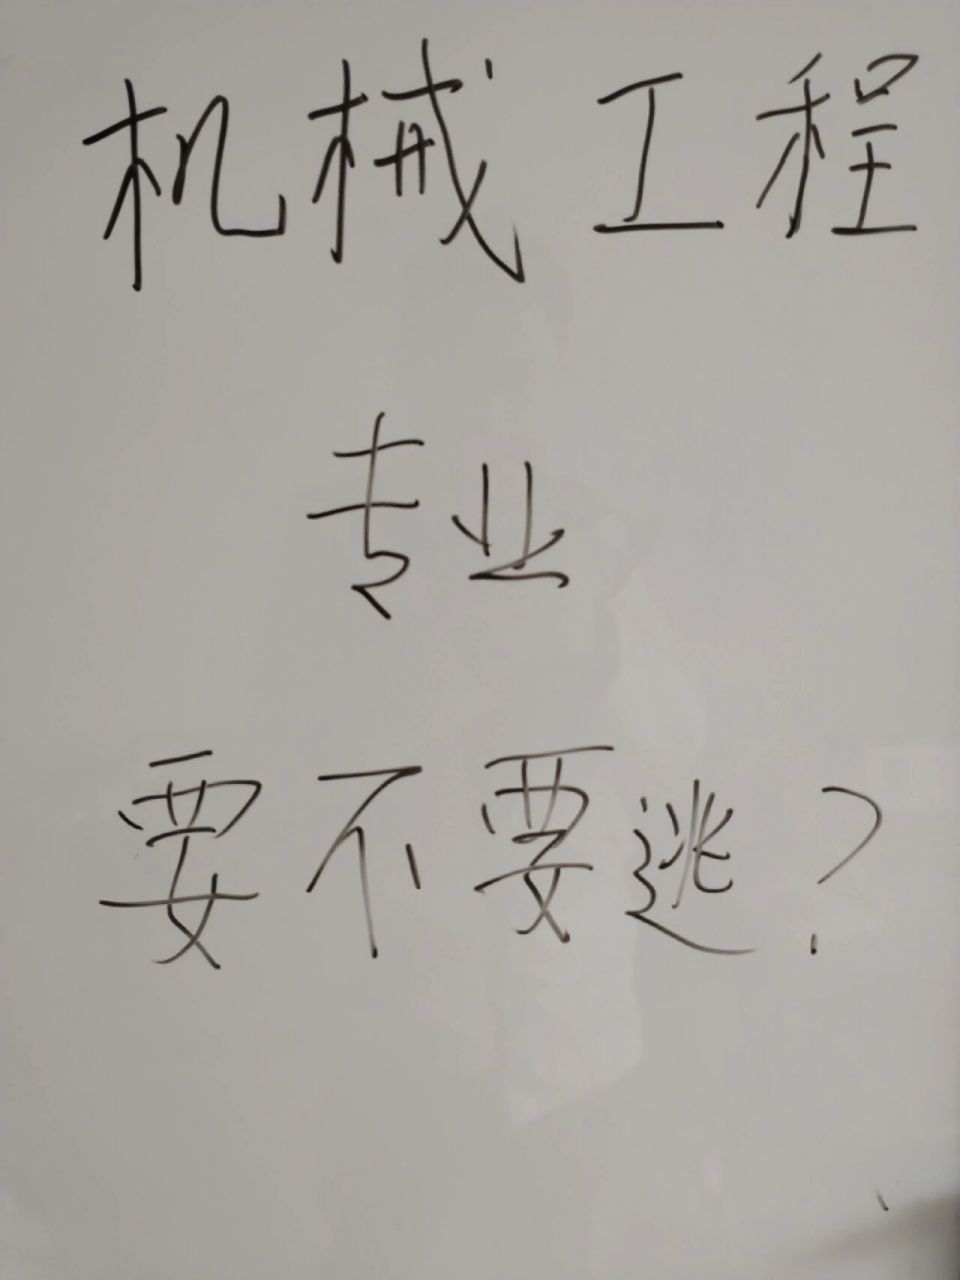 机械工程
专业
要不要逃?